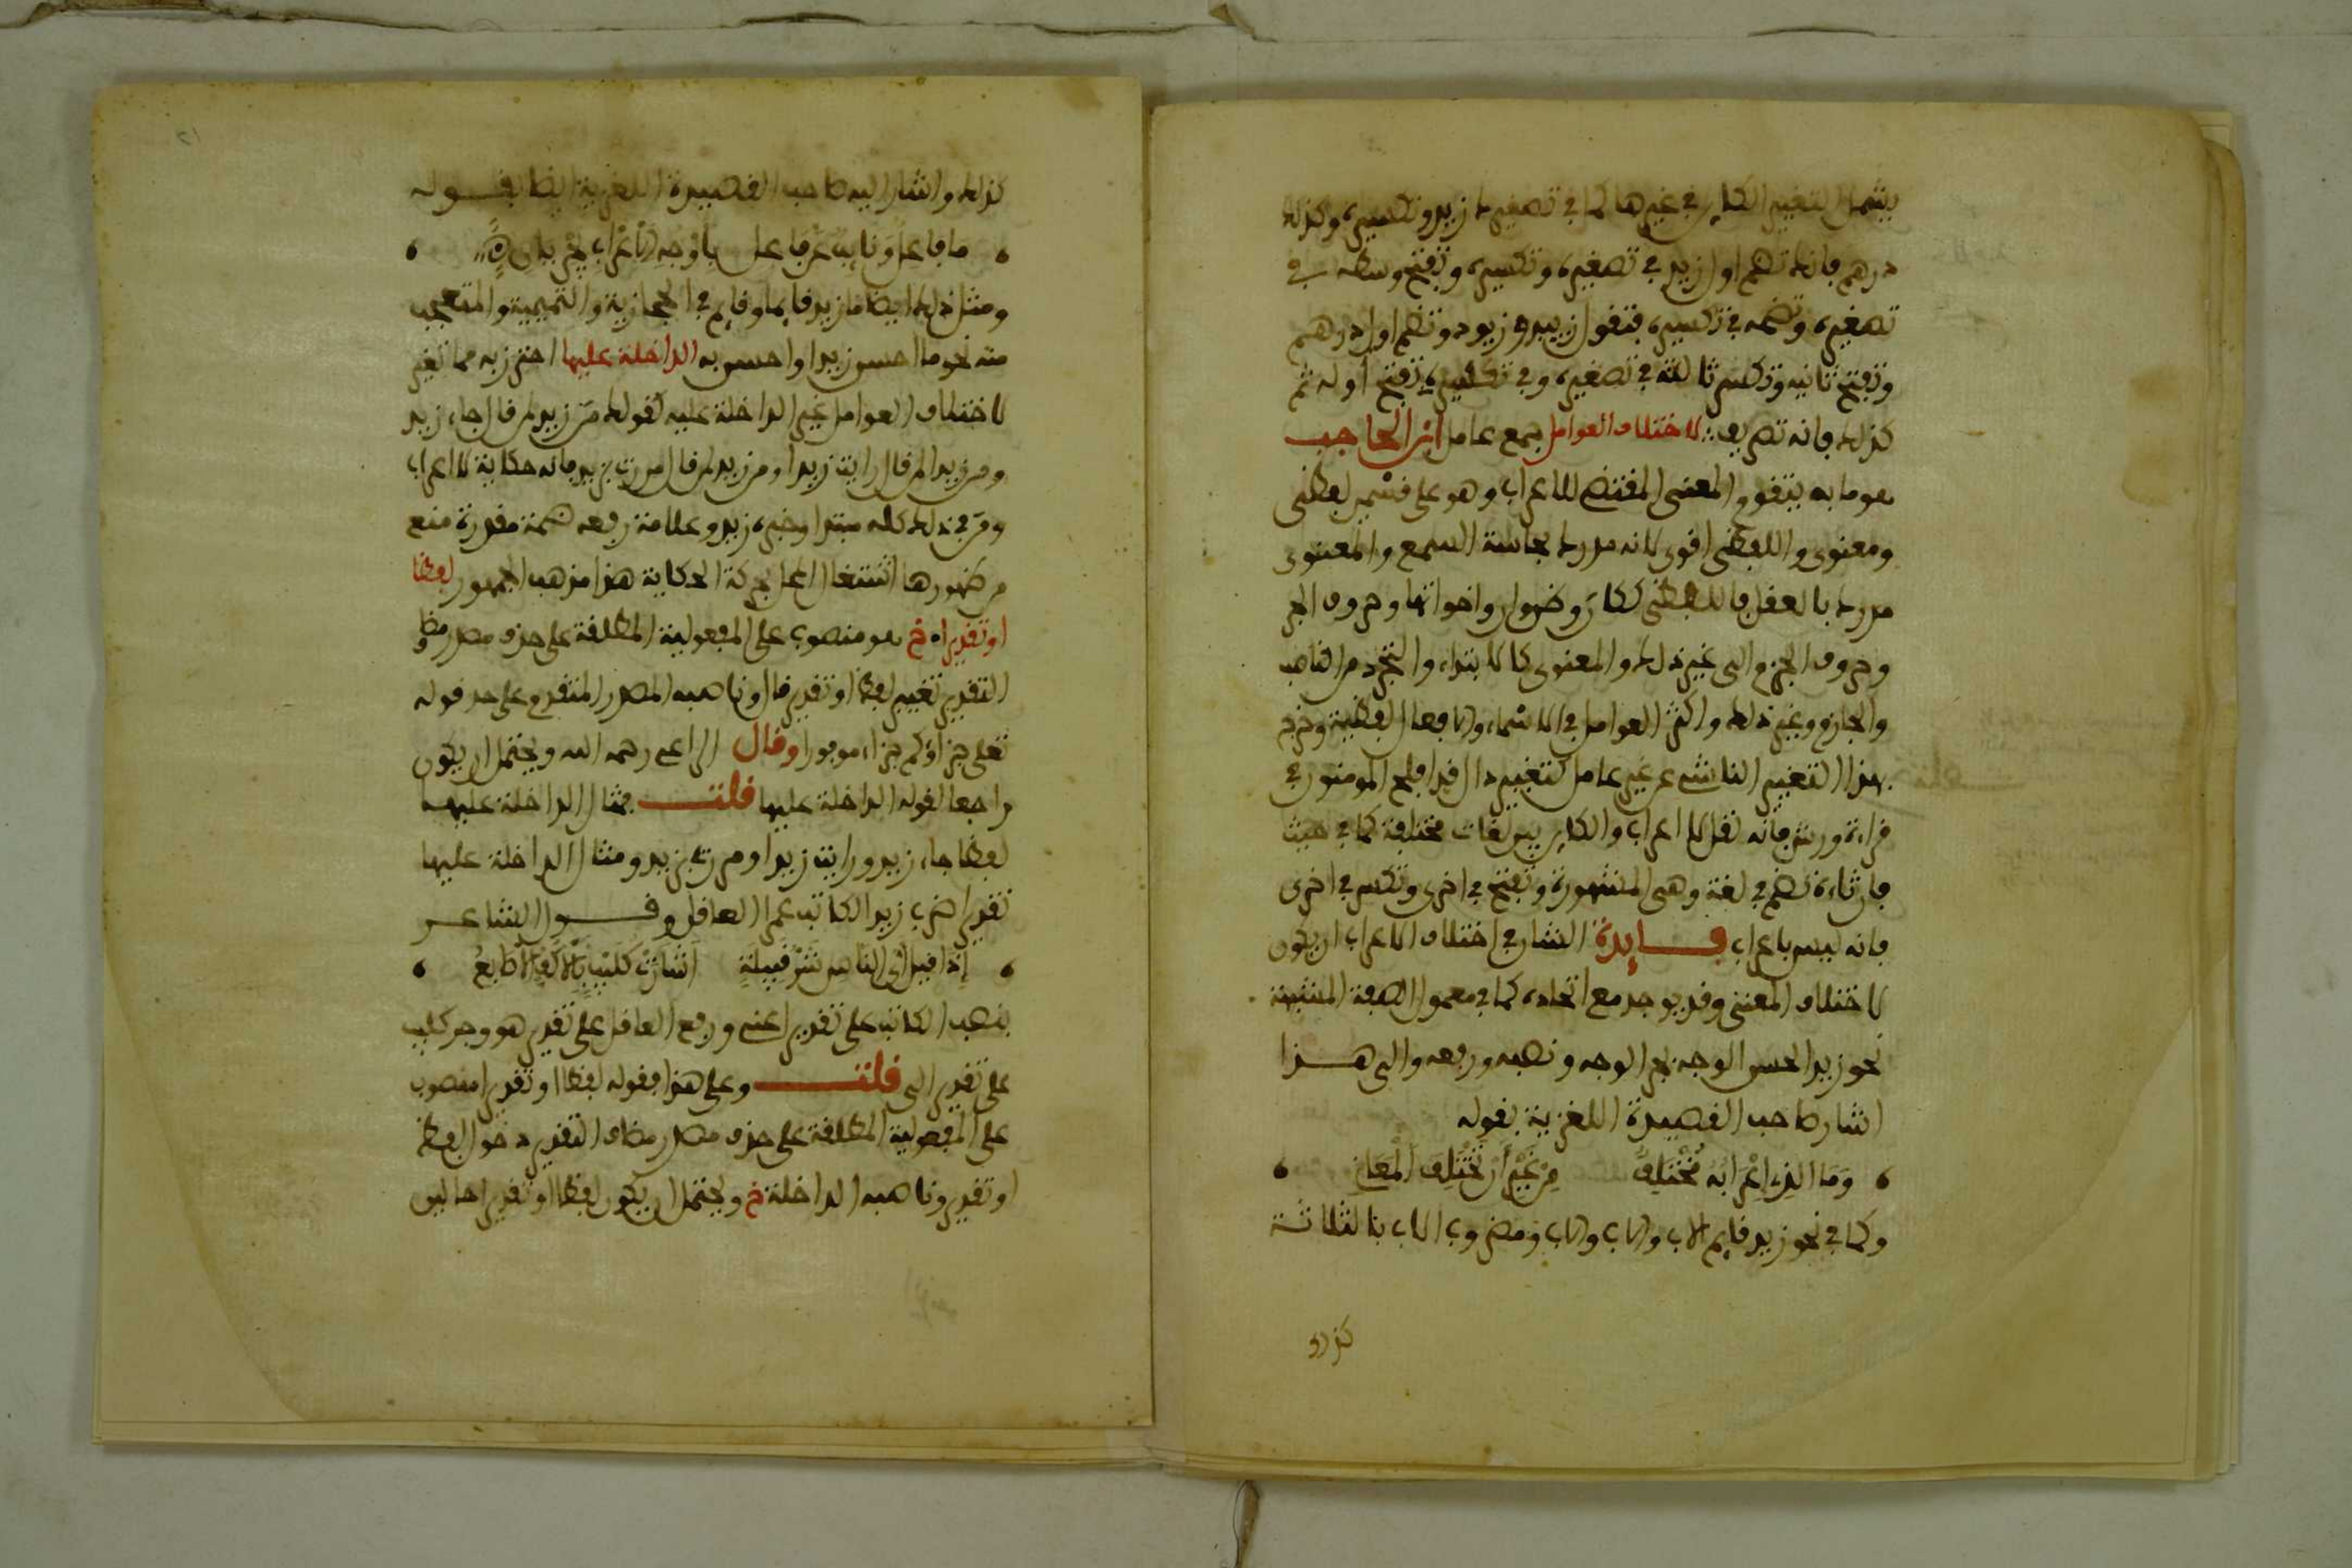 يشمل التغيير الكاين في غيرها كما في تصغير زيد وتكسيره وكذلك
درهم فانك تضم اول زيد في تصغيره وتكسيره وتفتح وسطه في
تصغيره وتضمه في تكسيره فتقول زييد وزيود وتضم اول درهم
وتفتح ثانيه وتكسر ثالثه في تصغيره وفي تكسيره تفتح اوله ثم
كذلك فانه تصريف لاختلاف العوامل جمع عامل ابن الحاجب
هو ما به يتقوم المعنى المقتضي للاعراب وهو على قسمين لفظي
ومعنوي واللفظي اقوى لانه مدرك بحاسة السمع والمعنوي
مدرك بالعقل فاللفظي ككان وظن وان واخواتها وحروف الجر
وحروف الجزم الى غير ذلك والمعنوي كالابتداء والتجرد من الناصب
والجازم وغير ذلك واكثر العوامل في الاسماء والافعال لفظية وخرج
بهذا التغيير الناشئ عن غير عامل كتغيير دال قد افلح المومنون في
قراءة ورش فانه نقل لا اعراب والكاين بين لغات مختلفة كما في حيث
فان ثاءه تضم في لغة وهي المشهورة وتفتح في اخرى وتكسر في اخرى
فانه ليس باعراب فــايدة الشان في اختلاف الاعراب ان يكون
لاختلاف المعنى وقد يوجد مع اتحاده كما في معمول الصفة المشبهة
نحو زيد الحسن الوجه بجر الوجه ونصبه ورفعه والى هــذا
اشار صاحب القصيدة اللغزية بقوله
وَمَا الذي اِعْرَابُهُ مُخْتَلِفٌ مِنْ غَيْرِ أَنْ تَخْتَلِفَ الْمَعَانِ
وكما في نحو زيد قايم الاب والاب والاب ومضروب الاب بالثلاثة
كذلك
كذلك واشار اليه صاحب القصيدة اللغزية ايضا بقــوله
مَا فاعل وَنايب عن فاعل باوجه الاعراب يجريان
ومثل ذلك ايضا ما زيد قايما وقايم في الحجازية والتميمية والمتعجب
منه نحو ما احسن زيدا واحسن به الداخلة عليها احترز به مما تغير
لاختلاف العوامل غير الداخلة عليه كقولك من زيد لمن قال جاء زيد
ومن زيدا لمن قال رايت زيدا ومن زيد لمن قال مررت بزيد فانه حكاية لا اعراب
ومن في ذلك كله مبتدا وخبره زيد وعلامة رفعه ضمة مقدرة منع
من ظهورها اشتغال المحل بحركة الحكاية هذا مذهب الجمهور لفظا
او تقديرا خ هو منصوب على المفعولية المطلقة على حذف مصدر مضاف
التقدير تغيير لفظ او تقدير قال وناصبه المصدر المتقدم على حد قوله
تعلى جزاؤكم جزاء موفورا وقال الراعي رحمه الله ويحتمل ان يكون
راجعا لقوله الداخلة عليها قلتــ مثال الداخلة عليها
لفظا جاء زيد ورايت زيدا ومررت بزيد ومثال الداخلة عليها
تقديرا ضرب زيد الكاتب عمرا العاقل وقــول الشاعــر
إذا قيل أي الناس شر قبيلة أشارت كليب بالأكف الأصابع
بنصب الكاتب على تقدير اعني ورفع العاقل على تقدير هو وجر كليب
على تقدير الى قلتــ وعلى هذا فقوله لفظا او تقديرا منصوب
على المفعولية المطلقة على حذف مصدر مضاف التقدير دخول لفظ
او تقدير وناصبه الداخلة خ ويحتمل ان يكون لفظا او تقديرا حالين